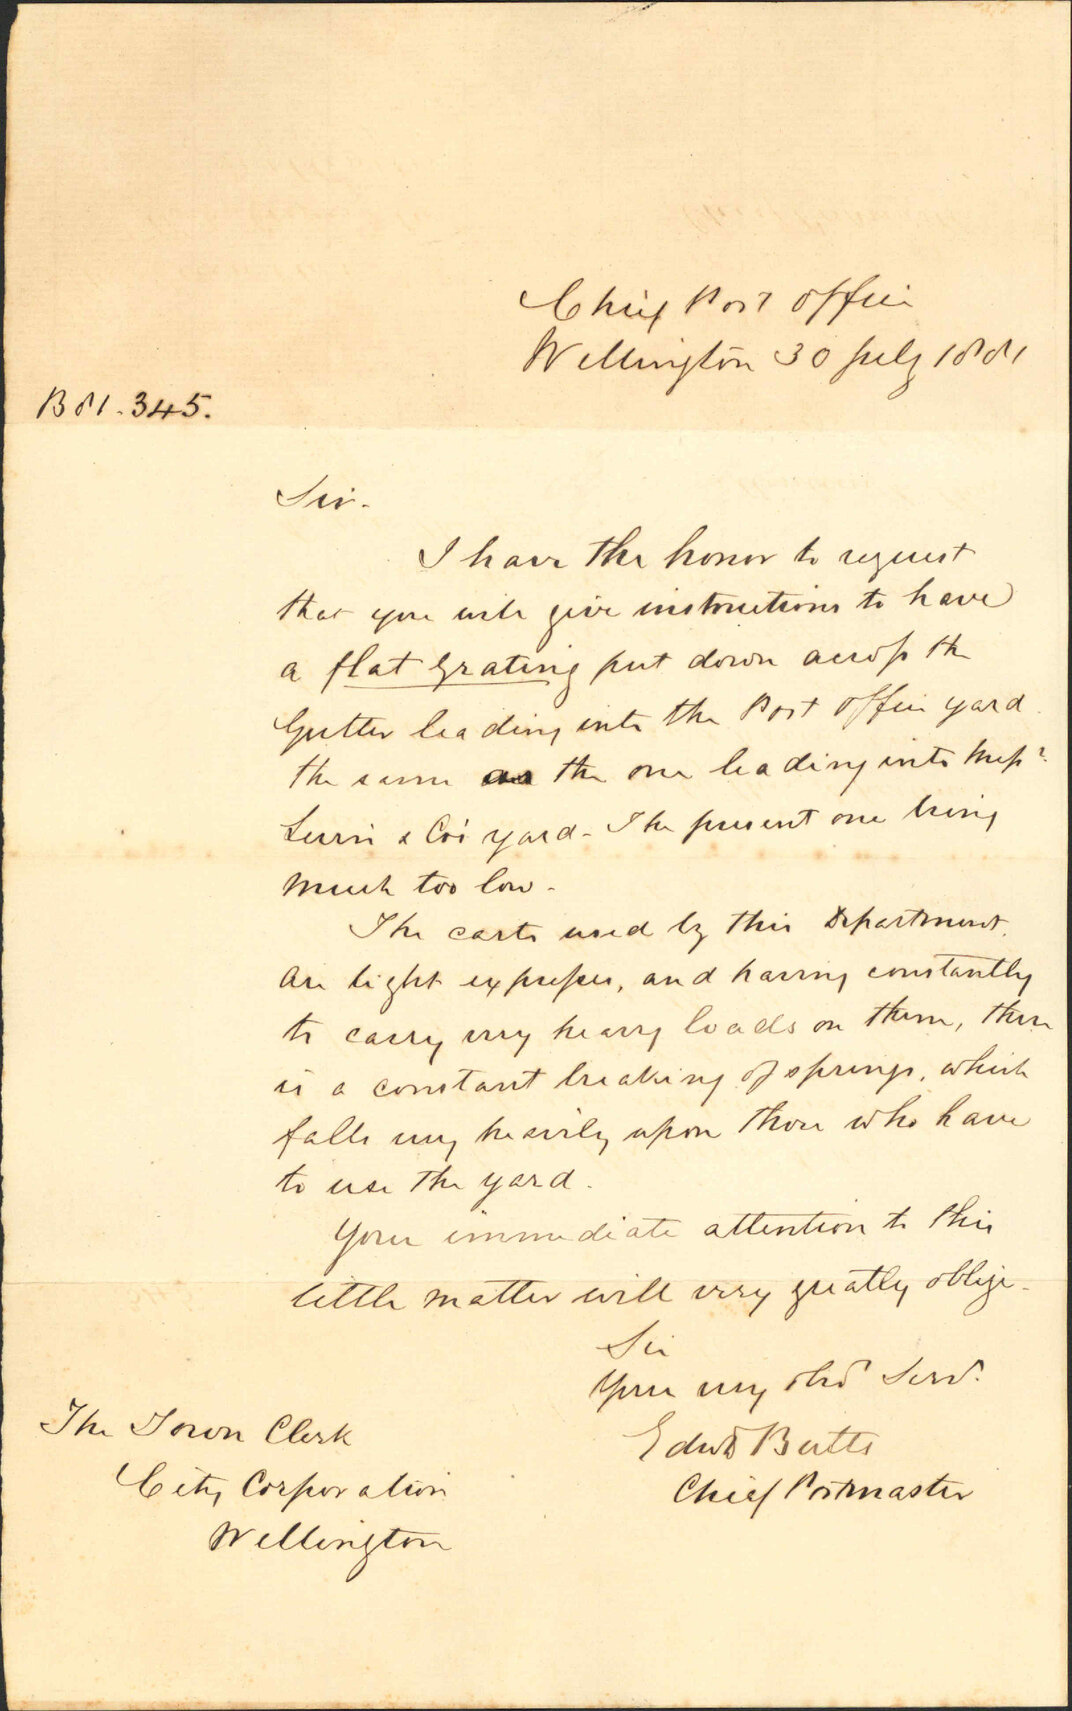 Chief Post Office
Wellington 30 July 1881
B81.345.
Sir.
I have the honor to request
that you will give instructions to have
a flat grating put down across the
Gutter leading into the Post Office yard
the same as the one leading into Messrs
Levin & Co's yard - The present one being
much too low.
The carts used by this Department
are light expresses, and having constantly
to carry very heavy loads on them, there
is a constant breaking of springs, which
falls very heavily upon those who have
to use the yard.
Your immediate attention to this
little matter will very greatly oblige -
Sir
Your very obd Servt.
Edwd Butts
Chief Postmaster
The Town Clerk
City Corporation
Wellington